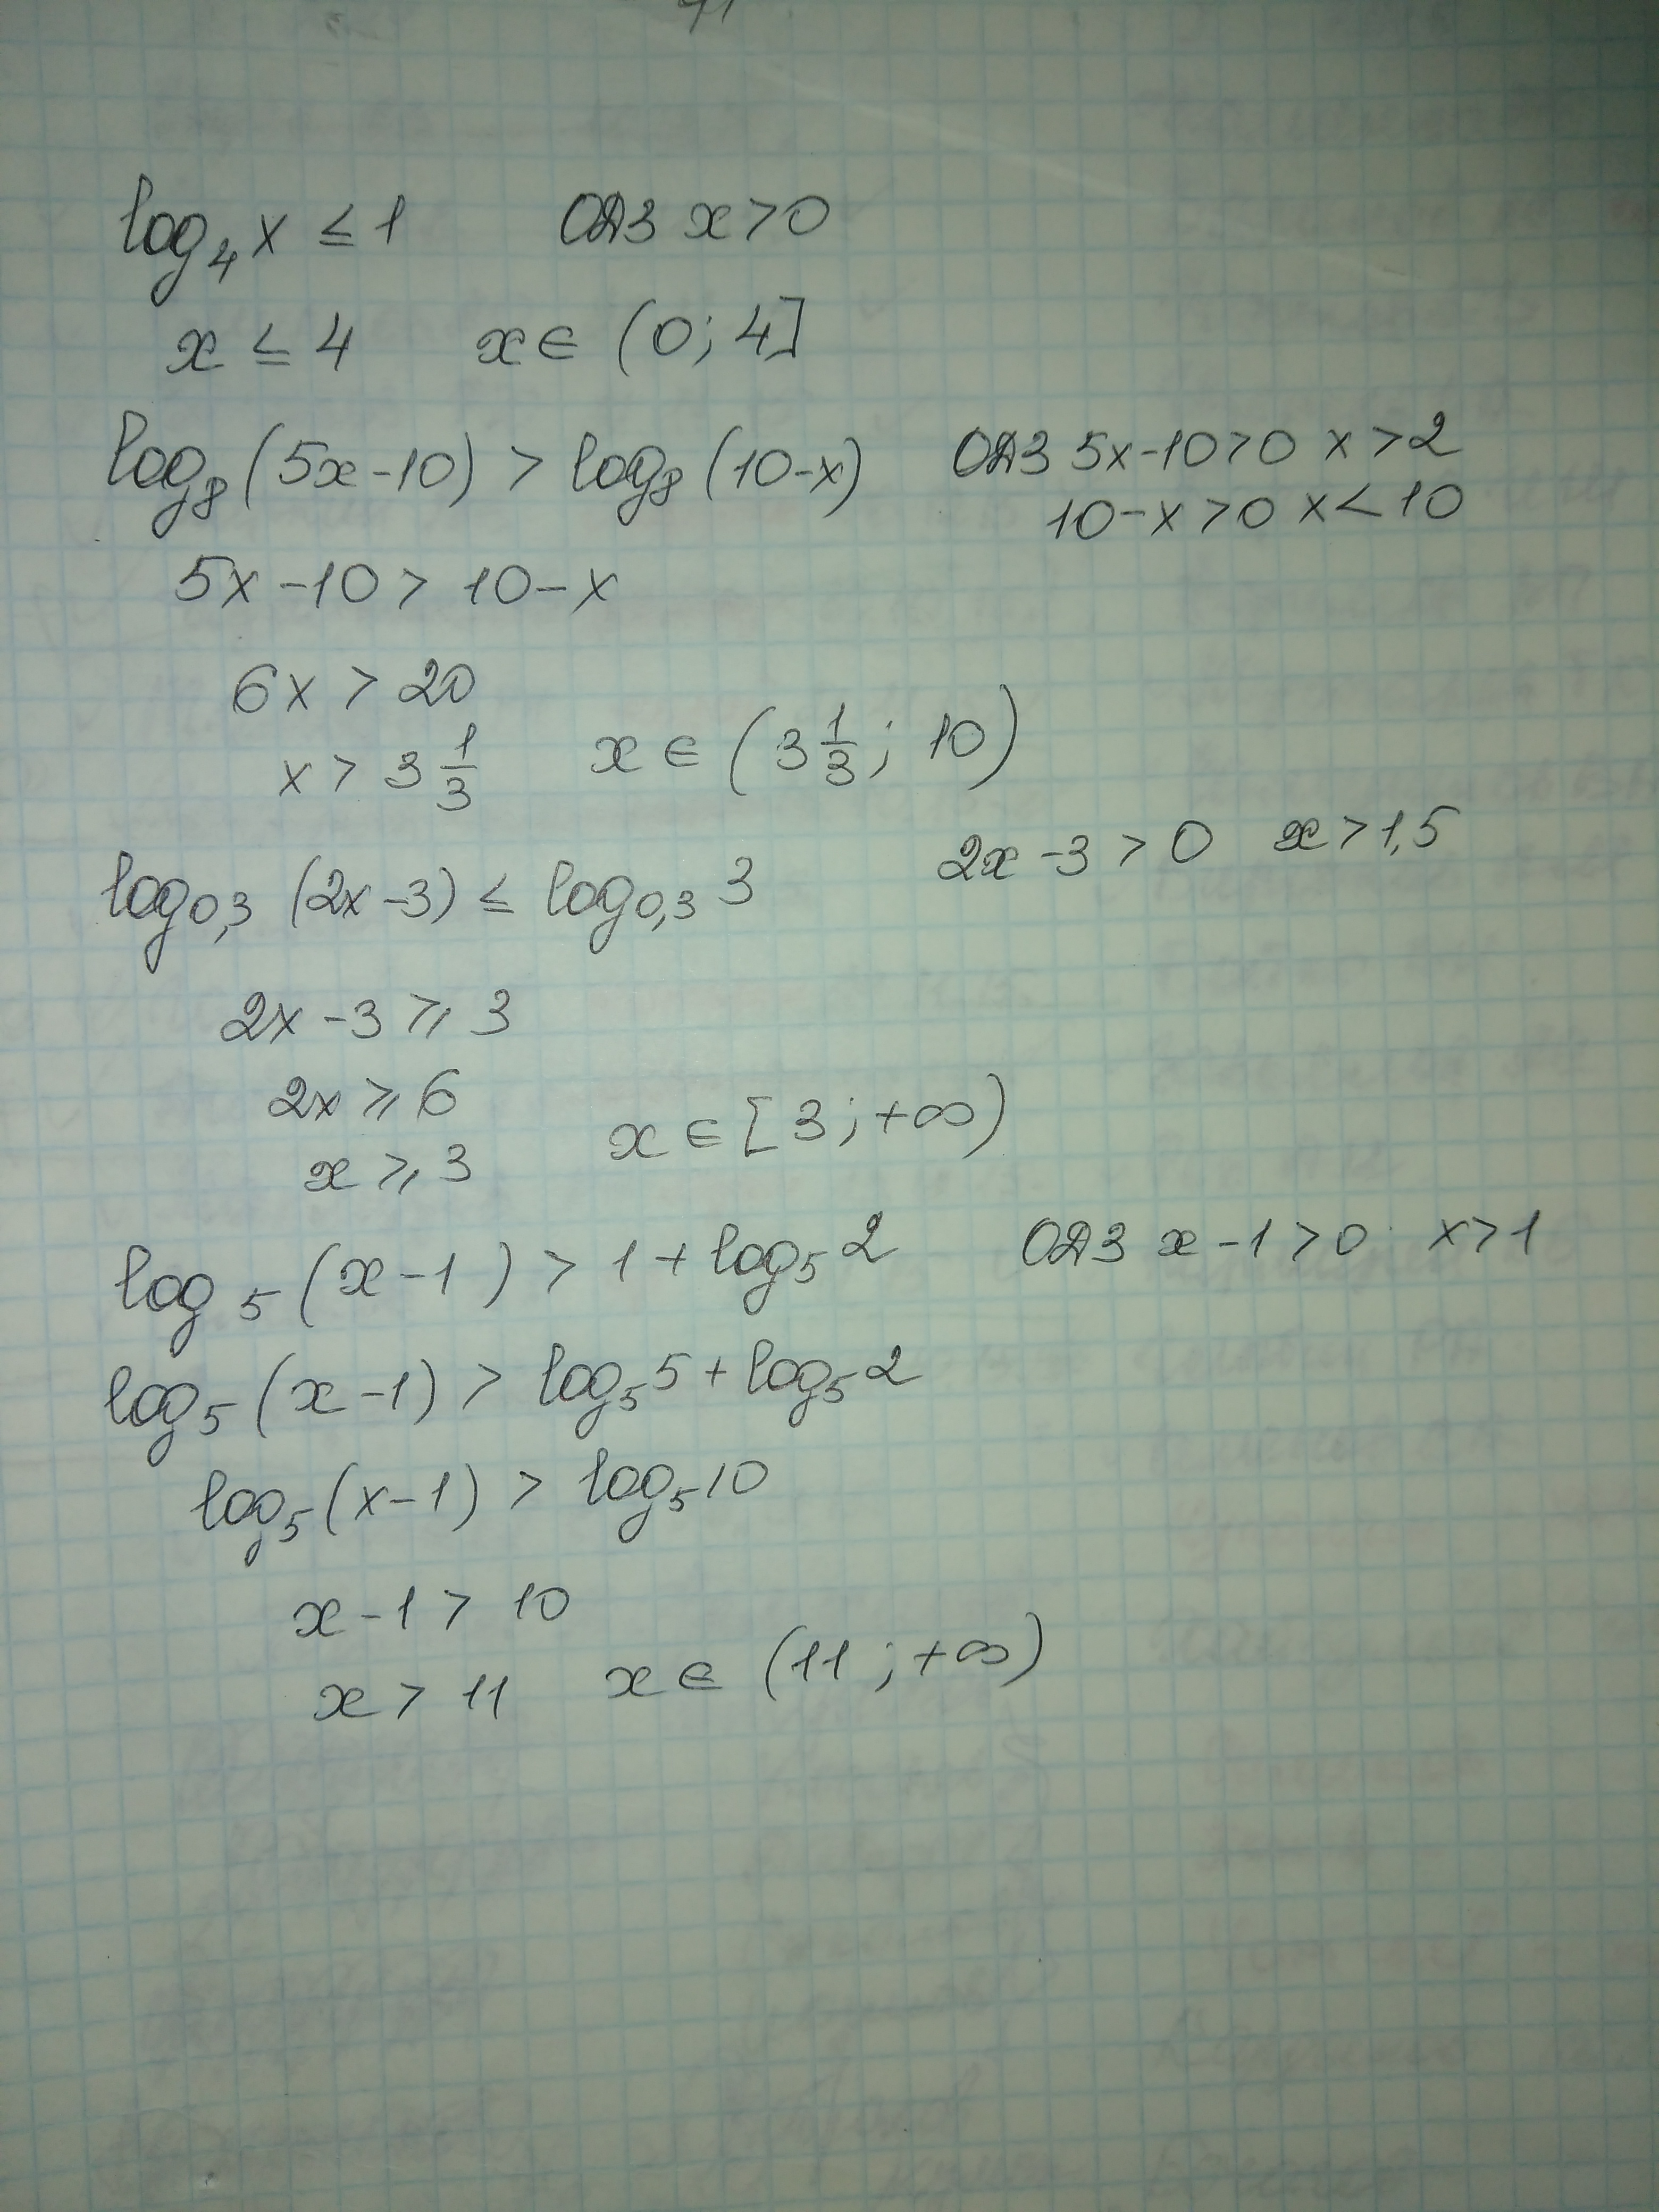 log₄ x ≤ 1 ОДЗ x > 0
x ≤ 4 x ∈ (0; 4]
log₈ (5x - 10) > log₈ (10 - x) ОДЗ 5x - 10 > 0 x > 2
10 - x > 0 x < 10
5x - 10 > 10 - x
6x > 20
x > 3 1/3 x ∈ (3 1/3; 10)
log₀,₃ (2x - 3) ≤ log₀,₃ 3 2x - 3 > 0 x > 1,5
2x - 3 ⩾ 3
2x ⩾ 6
x ⩾ 3 x ∈ [3; +∞)
log₅ (x - 1) > 1 + log₅ 2 ОДЗ x - 1 > 0 x > 1
log₅ (x - 1) > log₅ 5 + log₅ 2
log₅ (x - 1) > log₅ 10
x - 1 > 10
x > 11 x ∈ (11; +∞)